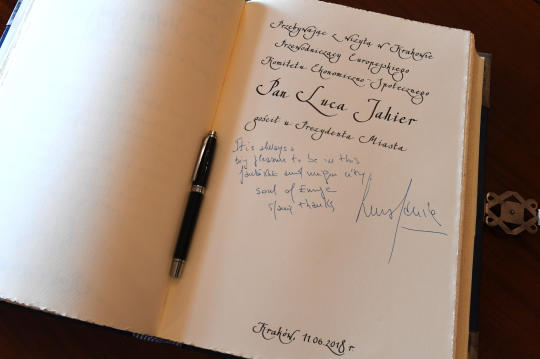 Przebywając z wizytą w Krakowie
Przewodniczący Europejskiego
Komitetu Ekonomiczno-Społecznego
Pan Luca Jahier
gościł u Prezydenta Miasta
It is always a
big pleasure to be in this
fantastic and unique city,
soul of Europe
thanks
Kraków, 11.06.2018 r.